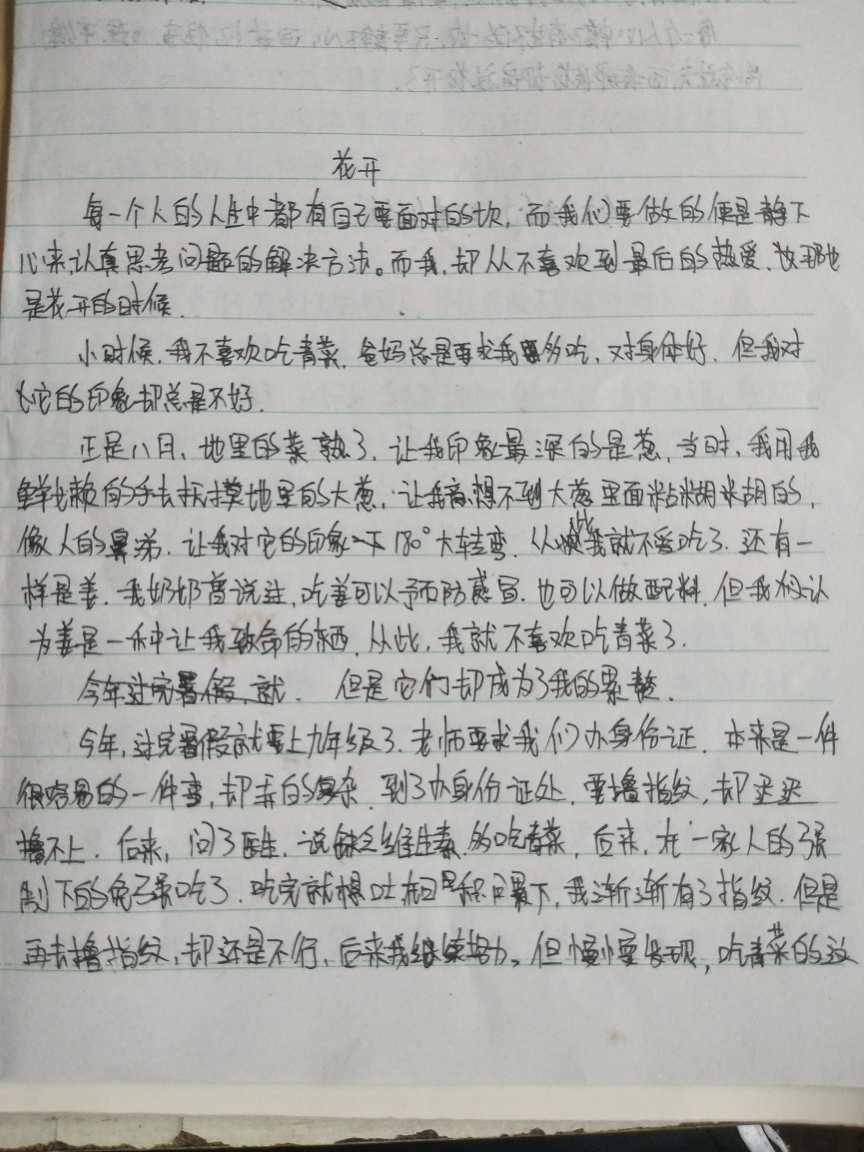 花开
每一个人的人生中都有自己要面对的坎,而我们要做的便是静下
心来,认真思考问题的解决方法。而我,却从不喜欢到最后的热爱,故那也
是花开的时候.
小时候,我不喜欢吃青菜,爸妈总是要求我多吃,对身体好,但我对
它的印象却总是不好.
正是八月,地里的菜熟了,让我印象最深的是葱,当时,我用我
鲜嫩的手去抚摸地里的大葱,让我意想不到大葱里面粘糊糊的,
像人的鼻涕,让我对它的印象180°大转变,从此我就不爱吃了.还有一
样是姜,我奶奶曾说过,吃姜可以预防感冒,也可以做配料,但我认
为姜是一种让我致命的东西,从此,我就不喜欢吃青菜了.
今年过完暑假,就. 但是它们却成为了我的累赘.
今年,过完暑假就要上九年级了,老师要求我们办身份证,本来是一件
很容易的一件事,却弄的复杂,到了办身份证处,要撸指纹,却迟迟
撸不上.后来,问了医生,说缺乏维生素,多吃青菜,后来,在一家人的强
制下的勉强吃了.吃完就想吐,日积月累下,我渐渐有了指纹.但是
再去撸指纹,却还是不行,后来我继续努力。但慢慢发现,吃青菜的这